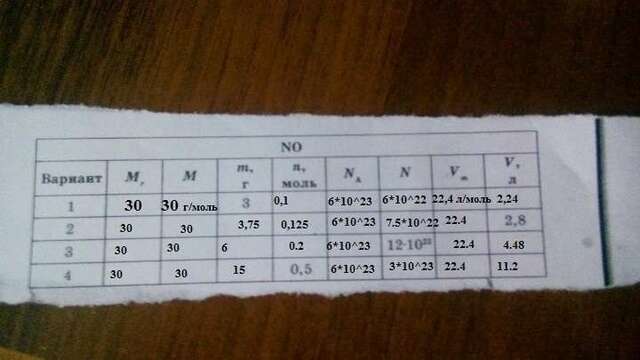 NO
Вариант M_r M m, г n, моль N_A N V_m V, л
1 30 30 г/моль 3 0,1 6*10^23 6*10^22 22,4 л/моль 2,24
2 30 30 3,75 0,125 6*10^23 7.5*10^22 22.4 2,8
3 30 30 6 0.2 6*10^23 12·10²² 22.4 4.48
4 30 30 15 0,5 6*10^23 3*10^23 22.4 11.2